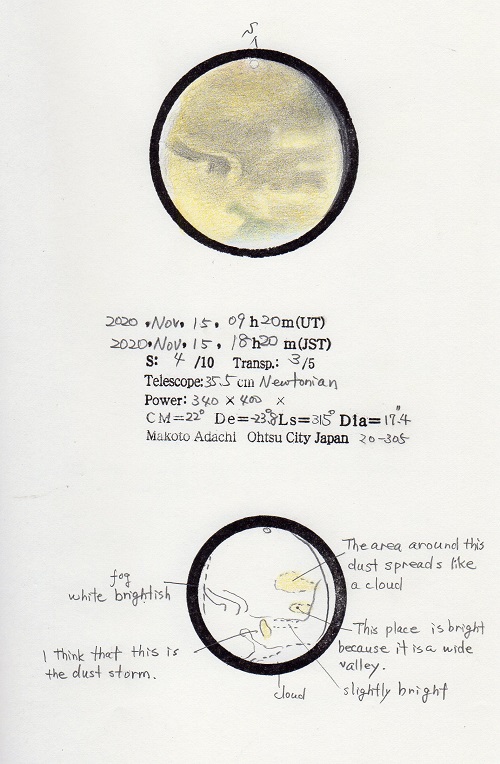 S
2020 .Nov. 15. 09 h 20 m(UT)
2020.Nov. 15. 18 h 20 m(JST)
S: 4 /10 Transp.: 3/5
Telescope: 35.5 cm Newtonian
Power: 340 × 400 ×
CM=22° De=-23.8 Ls=315° Dia=17.4"
Makoto Adachi Ohtsu City Japan 20-305
The area around this
dust spreads like
a cloud
fog
white brightish
This place is bright
because it is a wide
valley.
I think that this is
the dust storm.
slightly bright
cloud